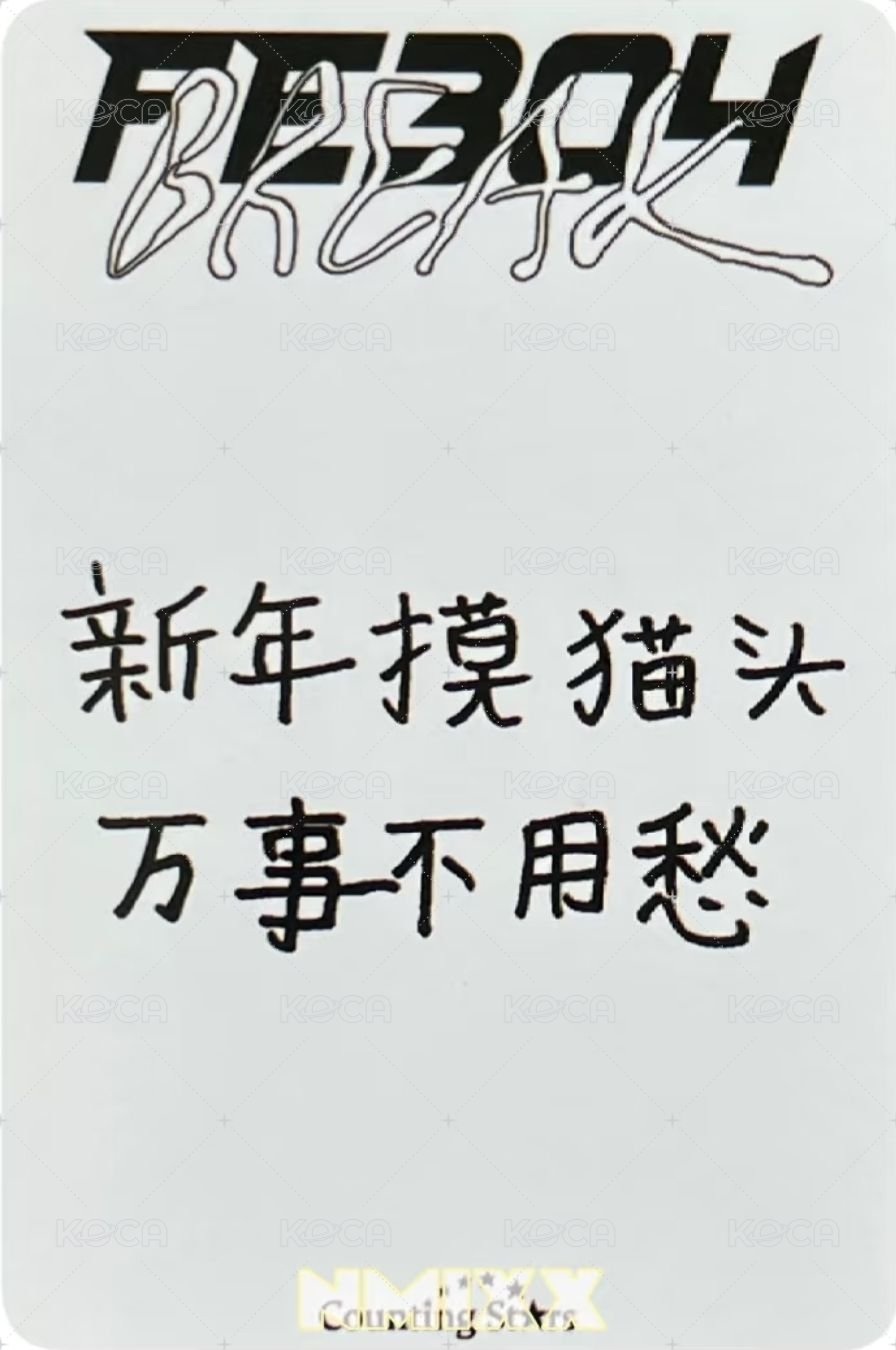 FE3O4
BREAK
新年摸猫头
万事不用愁
NMIXX
Counting Stars
KOCA